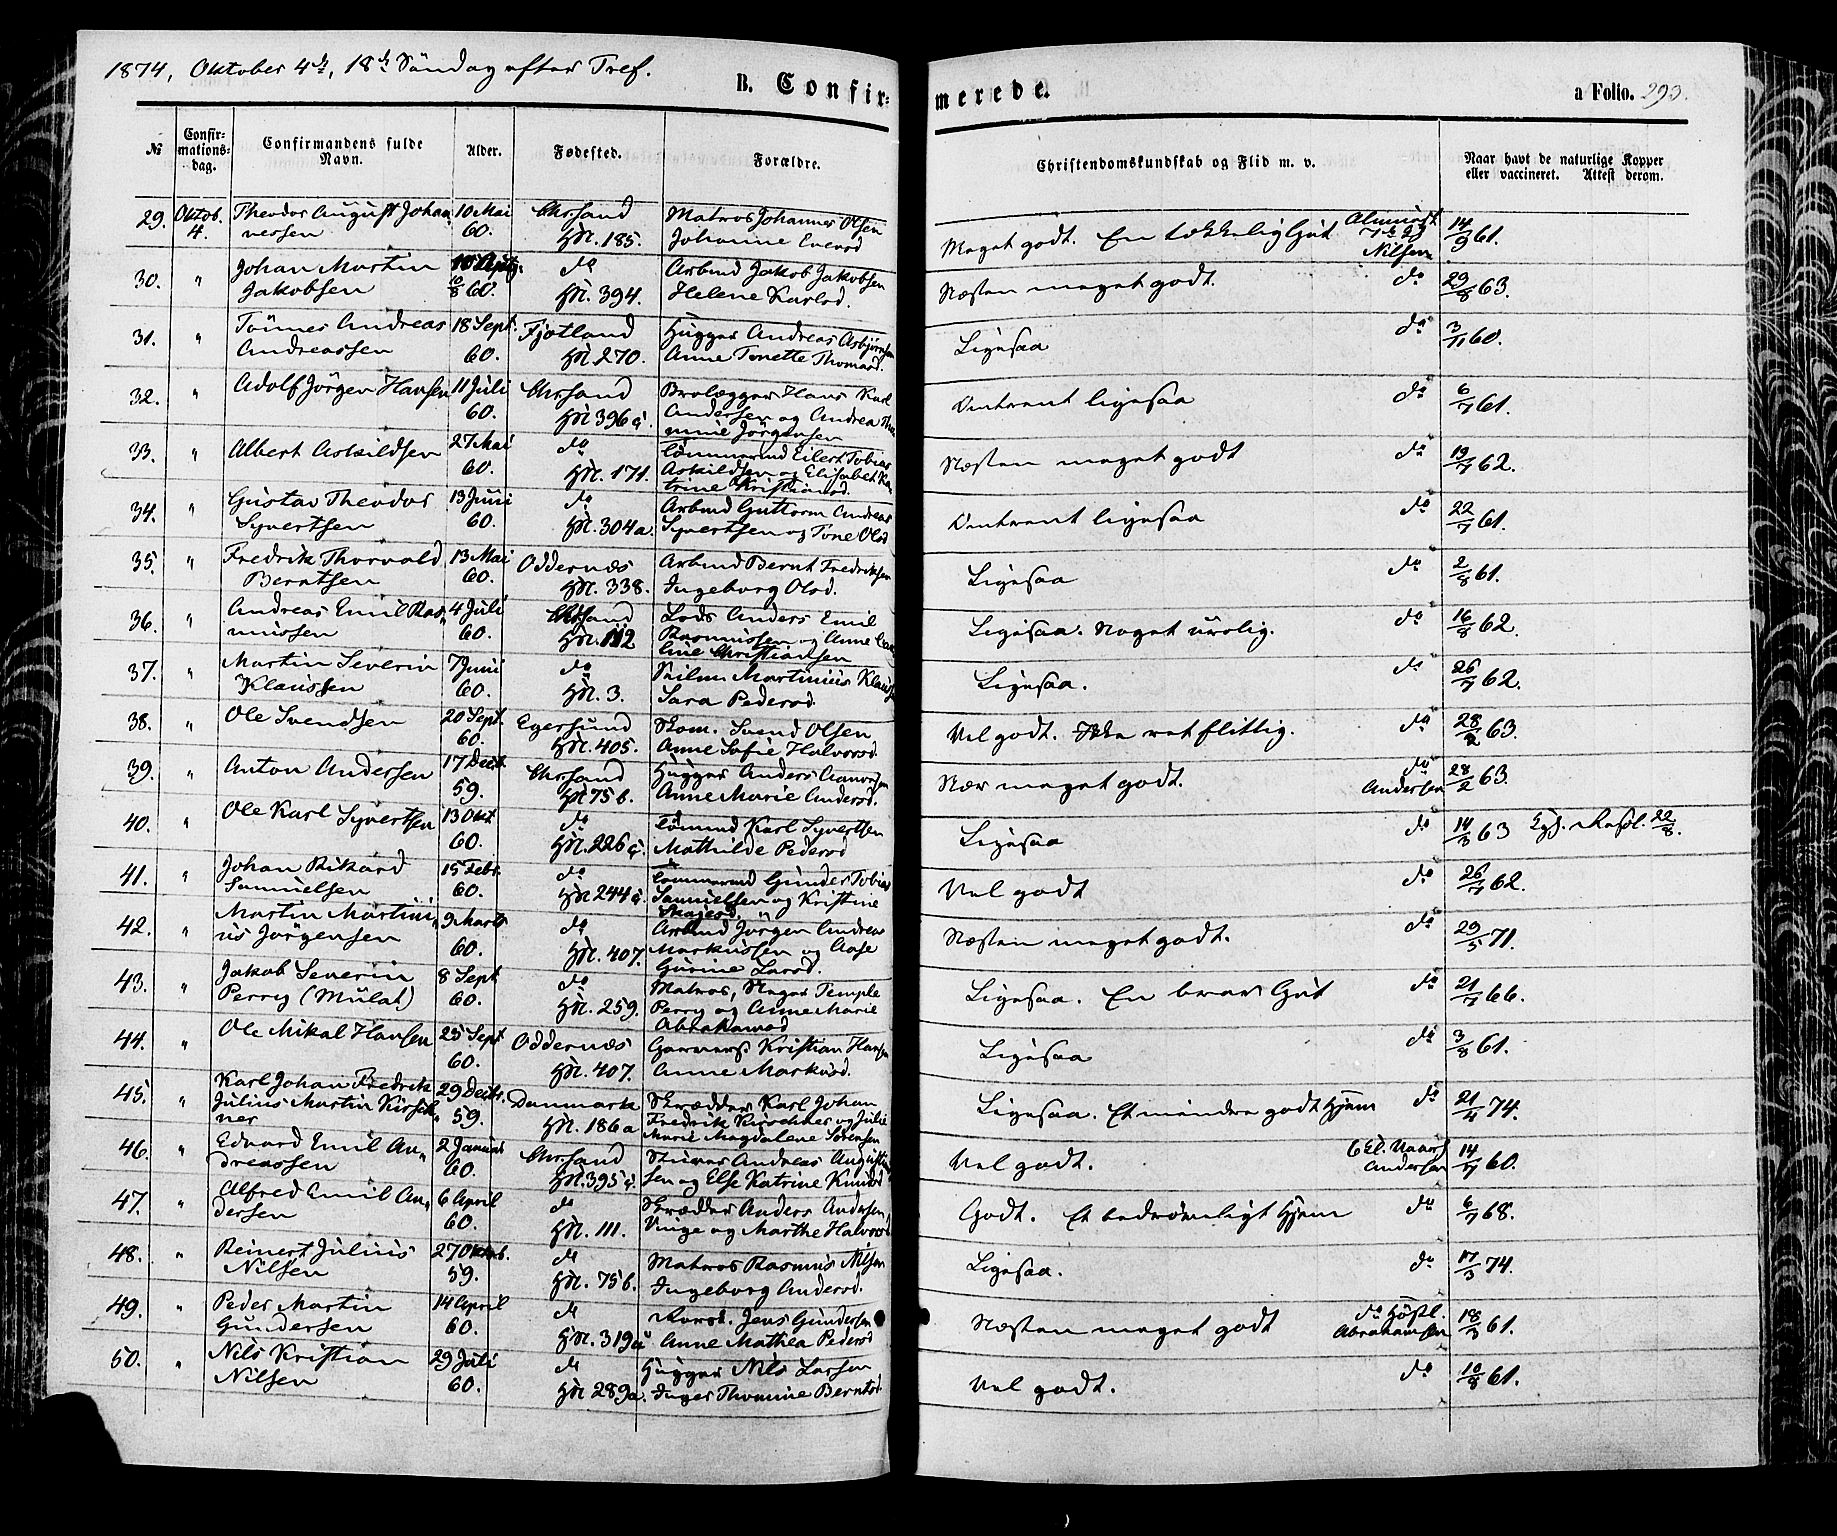 1874, Oktober 4de, 18de Söndag efter Tref.
B. Confirmerede.
a Folio. 293.
№ Confirmationsdag. Confirmandens fulde Navn. Alder. Fødested. Forældre. Christendomskundskab og Flid m. v. Naar havt de naturlige Kopper eller vaccineret. Attest derom.
29. Oktob. Theodor August Johan 10 Mai Chr.sand Matros Johannes Olsen
4. nessen 60. HN. 185. Johanne Evensd Meget godt. En tækkelig Gut Nilsen 14/9 61.
30. " Johan Martin do Arbmd Jakob Jakobsen
Jakobsen 10/8 60. HN. 394. Helene Karlsd. Næsten meget godt. do 29/8 63.
31. " Tönnes Andreas 18 Sept. Fjotland Hugger Andreas Asbjörnsen
Andreassen 60. HN 270. Anne Tonette Thomasd. Ligesaa do 3/11 60.
32. " Adolf Jörgen Hansen 11 Juli Chr.sand Brolægger Hans Karl
60. HN 396 Andersen og Andrea
Jörgensen Omtrent ligesaa do 6/7 61.
33. " Albert Askildsen 27 Mai do Tömmermd Eilert Tobias
60. HN. 171. Askildsen og Elisabet Ka
trine Kristiansd. Næsten meget godt do 19/7 62.
34. " Gustav Theodor 13 Juni do Arbmd Guttorm Andreas
Syvertsen 60. HN. 304a. Syvertsen og Tone Olsd Omtrent ligesaa do 22/7 61.
35. " Fredrik Thorvald 13 Mai Oddernæs Arbmd Bernt Fredriksen
Berntsen 60. HN. 338. Ingeborg Olsd. Ligesaa do 2/8 61.
36. " Andreas Emil Ras 4 Juli Chr.sand Lods Anders Emil
mussen 60. HN. 112 Rasmussen og Anne
line Christiansen Ligesaa. Noget urolig. do 16/8 62.
37. " Martin Severin 7 Juni do Seilm Martinius Klausen
Klaussen 60. HN. 3. Sara Pedersd. Ligesaa. do 26/7 62.
38. " Ole Svendsen 20 Sept. Egersund Skom. Svend Olsen
60. HN. 405. Anne Sofie Halvorsd. Vel godt. Ikke ret flittig. do 28/2 63.
39. " Anton Andersen 17 Decbr. Chr.sand Hugger Anders Aanonsen
59. HN 75b. Anne Marie Andersd. Nær meget godt. do Andersen 28/2 63.
40. " Ole Karl Syvertsen 13 Okt do Tömmd Karl Syvertsen
60. HN. 226 Mathilde Pedersd Ligesaa do 14/3 63 22/8.
41. " Johan Rikard 15 Febr. do Tömmermd Gunder Tobias
Samuelsen 60. HN. 244 Samuelsen og Kristine
Vel godt do 26/7 62.
42. " Martin Martini 9 Marts do Arbmd Jörgen Andreas
us Jörgensen 60. HN. 407. Markussen og Aase
Gurine Larsd. Næsten meget godt. do 29/5 71.
43. " Jakob Severin 8 Sept do Matros, Neger Temple
Perry (Mulat) 60. HN. 259. Perry og Anne Marie
Abrahamsd Ligesaa. En brav Gut do 21/7 66.
44. " Ole Mikal Hansen 25 Sept Oddernæs Garvers. Kristian Hansen
60. HN. 407. Anne Markusd. Ligesaa do 3/8 61.
45. " Karl Johan Fredrik 29 Decbr. Danmark Skrædder Karl Johan
Julius Martin Kirsch 59. HN. 186a Fredrik Kirschner og Julie
ner Marie Magdalene Sörensen Ligesaa. Et mindre godt Hjem do 21/4 74.
46. " Edvard Emil An 2 Januar Chr.sand Stuver Andreas Augustin
dreassen 60. HN. 395 sen og Else Katrine Knudsd Vel godt. Andersen 14/7 60.
47. " Alfred Emil An 6 April do Skrædder Anders Andersen
dersen 60. HN. 111. Vinge og Marthe Halvorsd Godt. Et bedröveligt Hjem do 6/7 68.
48. " Reinert Julius 27 Oktob. do Matros Rasmus Nilsen
Nilsen 59. HN. 75b. Ingeborg Andersd. Ligesaa. do 17/3 74.
49. " Peder Martin 14 April do Jens Gundersen
Gundersen 60. HN. 319a Anne Mathea Pedersd Næsten meget godt do Abrahamsen 18/3 61.
50. " Nils Kristian 29 Juli do Hugger Nils Larsen
Nilsen 60. HN. 289a. Inger Thomine Berntsd. Vel godt. do 10/8 61.